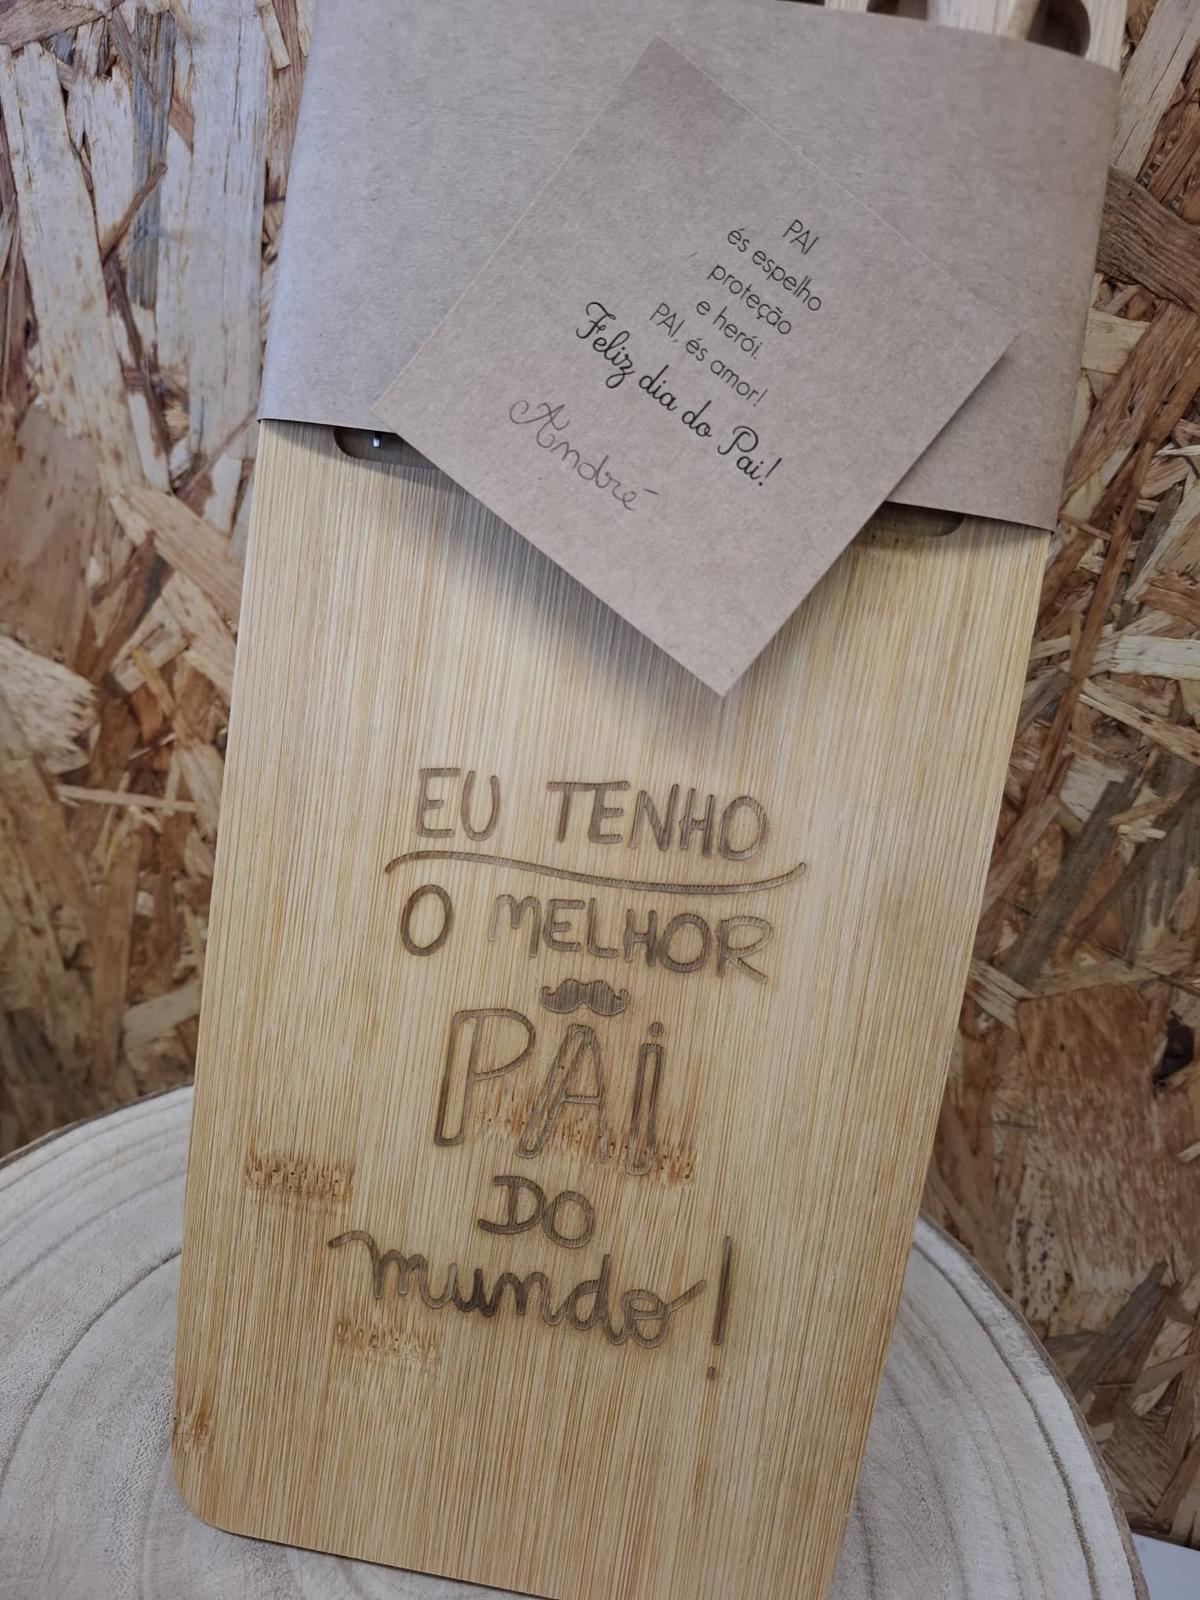 PAI
és espelho
proteção
e herói.
PAI, és amor!
Feliz dia do Pai!
André
EU TENHO
O MELHOR
PAi
DO
mundo!